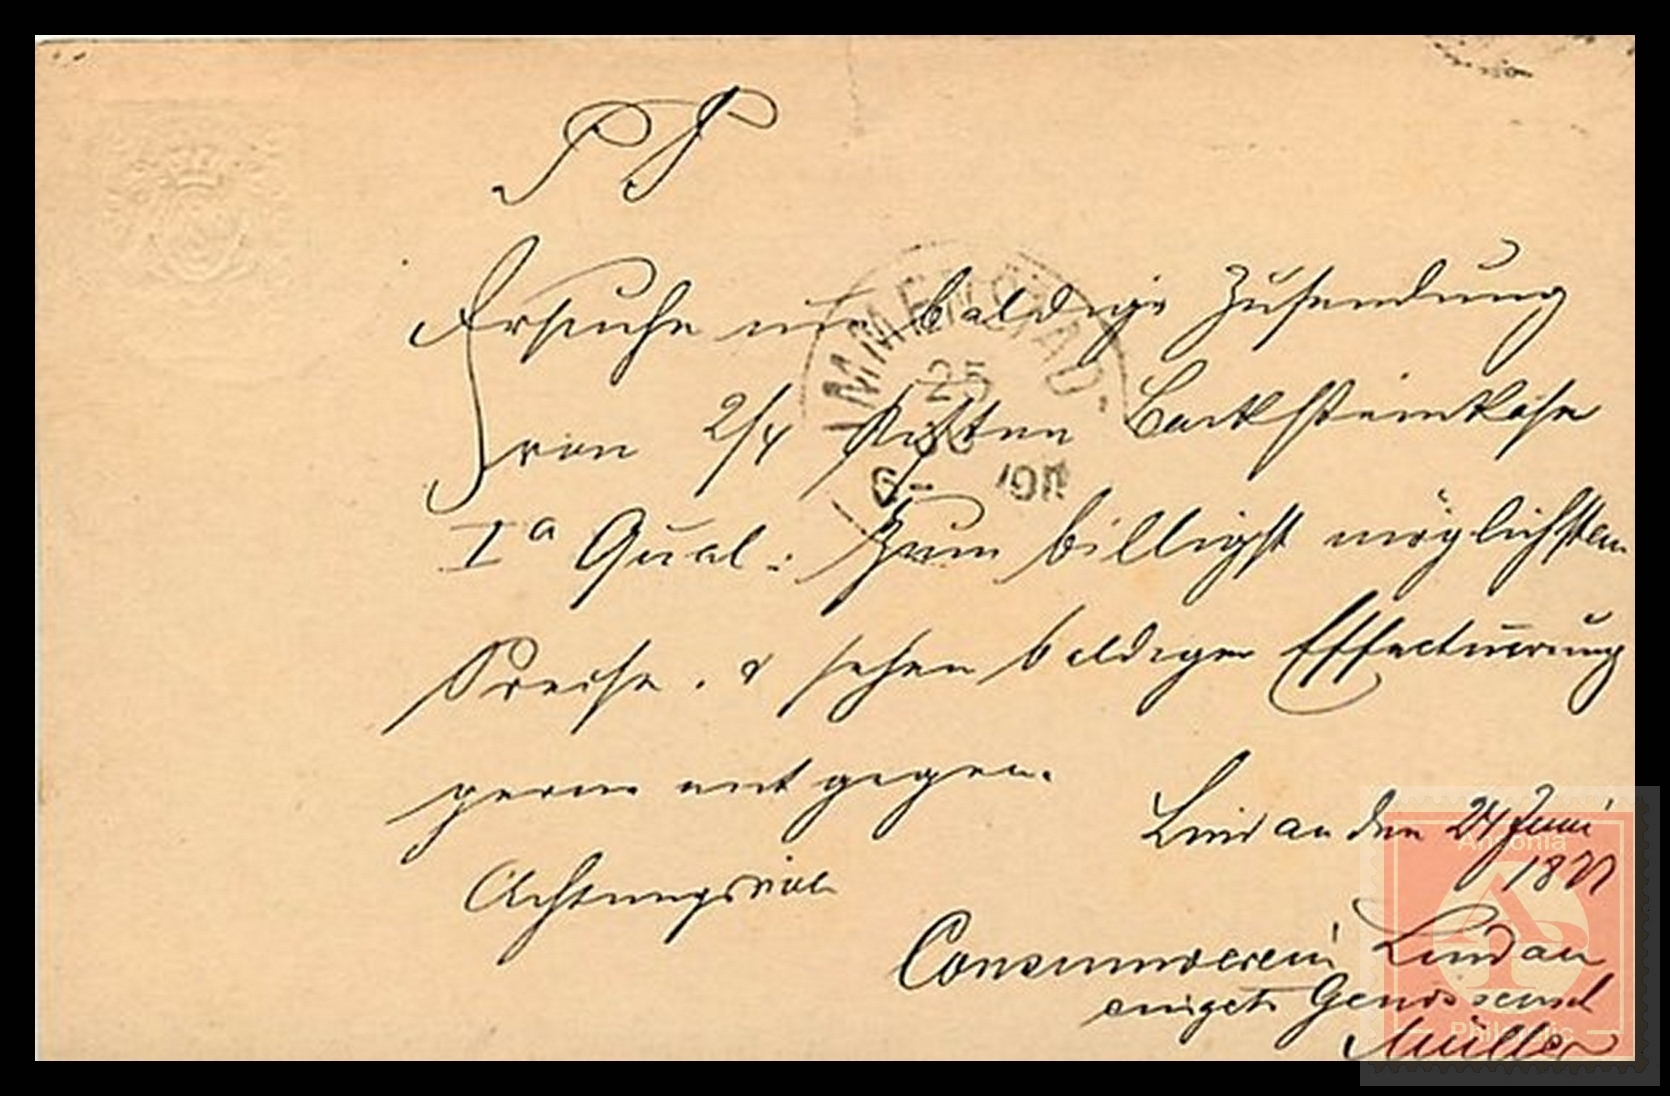 P P
Ersuche um baldige Zusendung
von 2/4 Kisten Backsteinkäse
Ia Qual: zum billigst möglichsten
Preise. & sehen baldiger Effectuirung
gerne entgegen.
Achtungsvoll
Lindau den 24 Juni
Consumverein Lindau
Genossensch
Müller
IMMENSTAD
25
6-
Ansonia
Philatelic